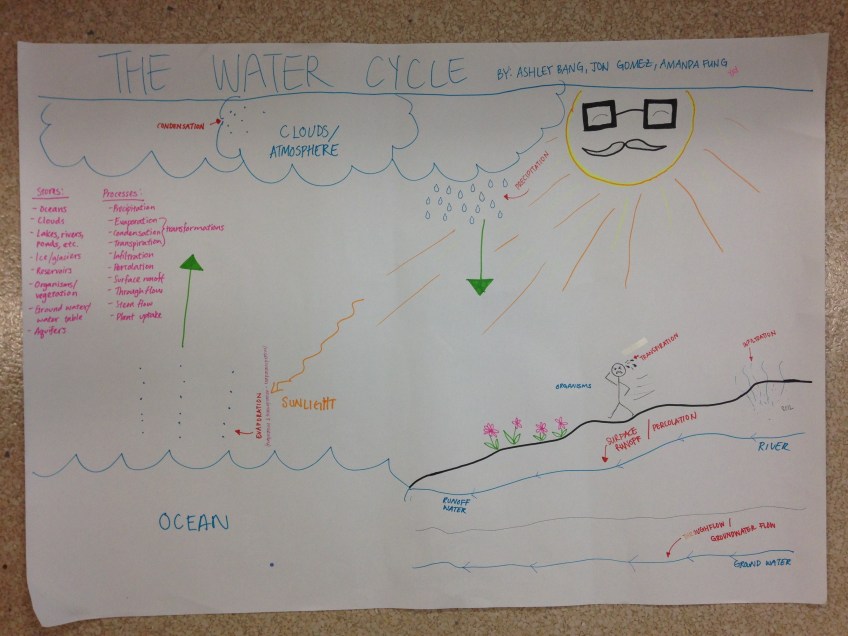 THE WATER CYCLE
BY: ASHLEY BANG, JON GOMEZ, AMANDA FUNG
CONDENSATION
CLOUDS/
ATMOSPHERE
PRECIPITATION
Stores:
- Oceans
- Clouds
- Lakes, rivers,
ponds, etc.
- Ice/glaciers
- Reservoirs
- Organisms/
vegetation
- Ground water/
water table
- Aquifers
Processes:
- Precipitation
- Evaporation
- Condensation
- Transpiration
transformations
- Infiltration
- Percolation
- Surface runoff
- Through flow
- Stem flow
- Plant uptake
EVAPORATION
SUNLIGHT
TRANSPIRATION
ORGANISMS
SURFACE
RUNOFF
/ PERCOLATION
RIVER
RUNOFF
WATER
OCEAN
THROUGHFLOW /
GROUNDWATER FLOW
GROUND WATER